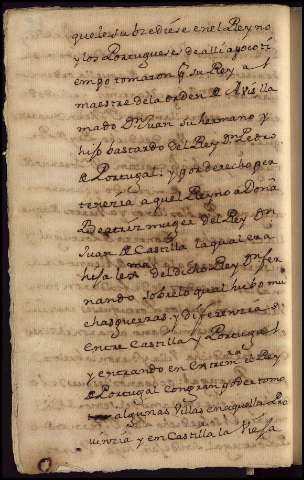 que le subçediese en el Reyno
y los Portugueses de alli a poco ti
empo tomaron por su Rey a el
maestre de la orden de Avis lla
mado Dn Juan su hermano y
hijo bastardo del Rey Dn Pedro
de Portugal. y por derecho per
teneçia aquel Reyno a Doña
Beatriz muger del Rey Dn
Juan de Castilla la qual era
hija legma del dicho Rey Dn fer
nando sobre lo qual hubo mu
chas guerras, y diferençias
entre Castilla y Portugal
y entrando en Estremra el Rey
de Portugal con gran poder tomo
algunas Villas en aquella Pro
vinçia y en Castilla la Vieja